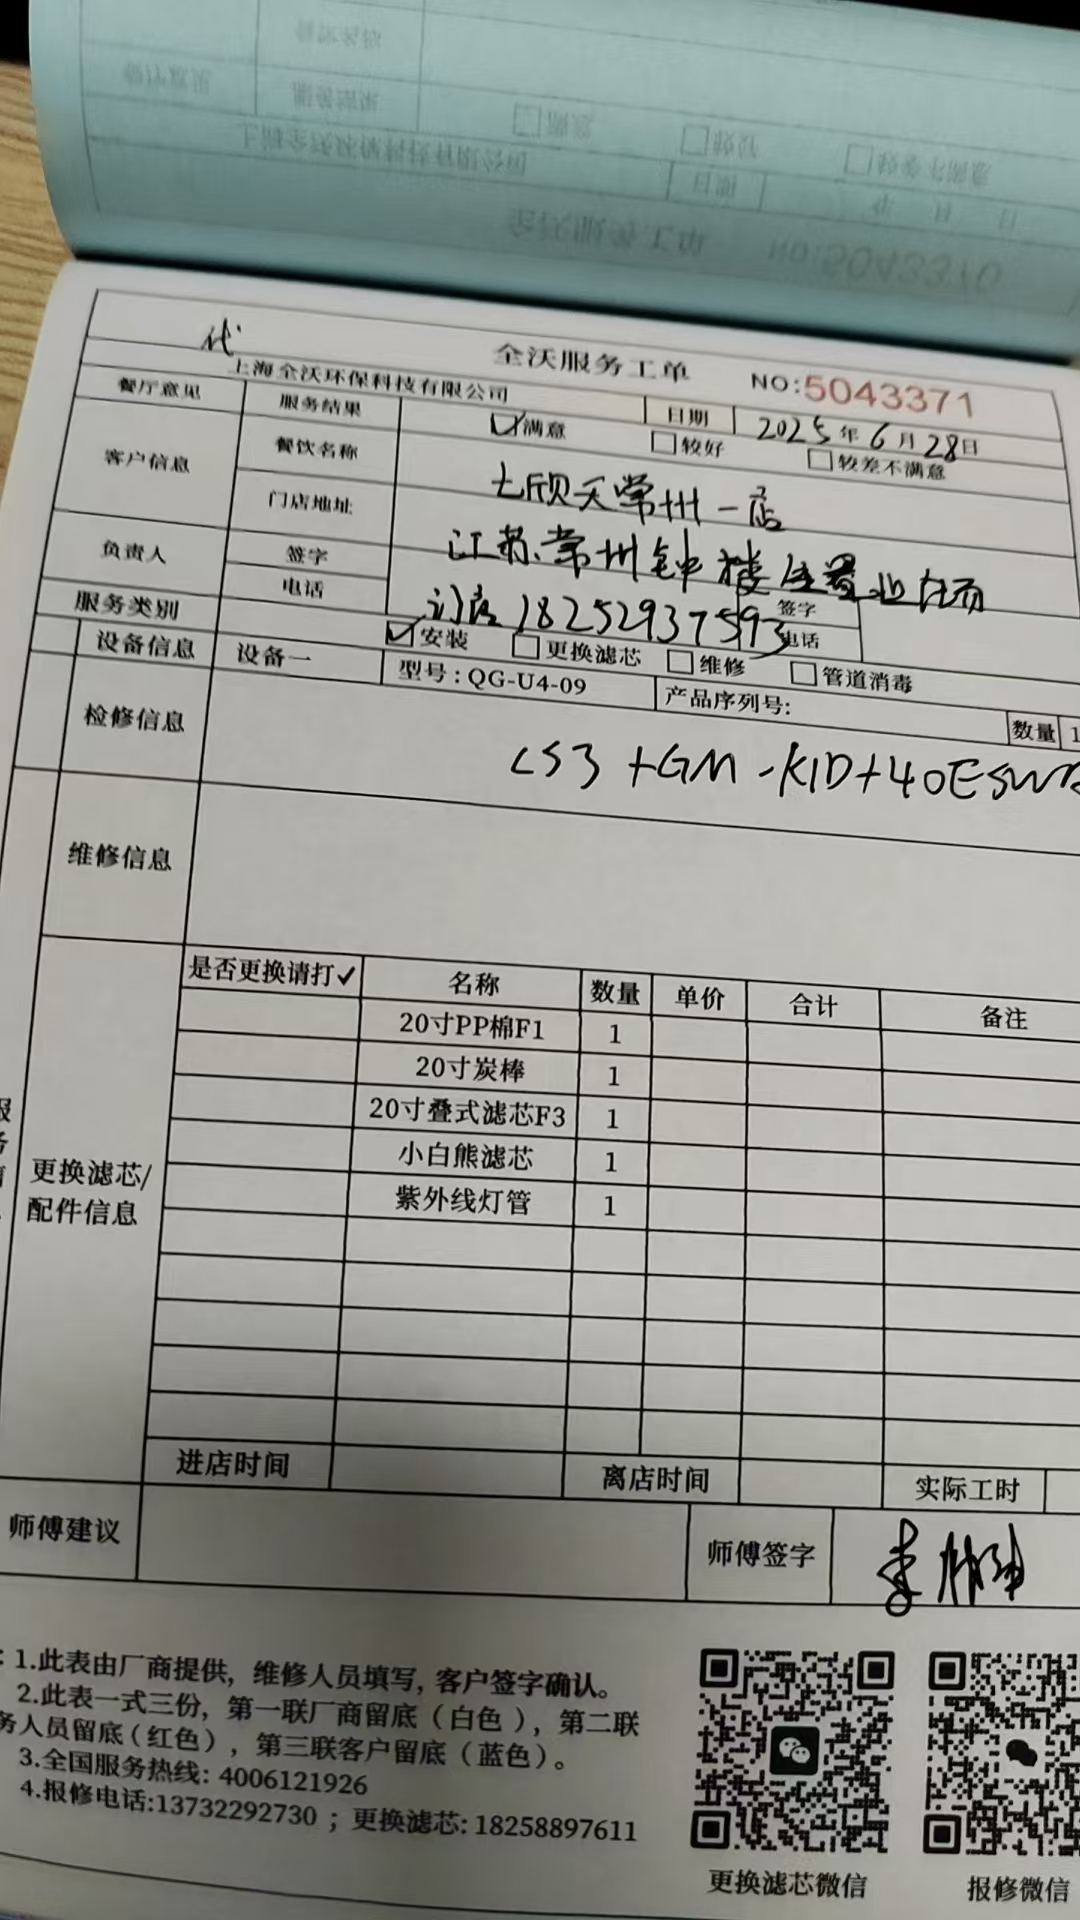 代
全沃服务工单 NO:5043371
上海全沃环保科技有限公司 日期 2025年6月28日
餐厅意见 服务结果 满意 较好 较差不满意
客户信息 餐饮名称 七欣天常州一店
门店地址 江苏常州钟楼
负责人 签字 签字
电话 门店 18252937593 电话
服务类别 安装 更换滤芯 维修 管道消毒
设备信息 设备一 型号:QG-U4-09 产品序列号: 数量 1
检修信息 CS3 +GM-K1D+40ESW
维修信息
是否更换请打✓ 名称 数量 单价 合计 备注
20寸PP棉F1 1
20寸炭棒 1
20寸叠式滤芯F3 1
小白熊滤芯 1
紫外线灯管 1
更换滤芯/
配件信息
进店时间 离店时间 实际工时
师傅建议 师傅签字
1.此表由厂商提供,维修人员填写,客户签字确认。
2.此表一式三份,第一联厂商留底(白色),第二联
务人员留底(红色),第三联客户留底(蓝色)。
3.全国服务热线: 4006121926
4.报修电话:13732292730 ; 更换滤芯: 18258897611
更换滤芯微信 报修微信